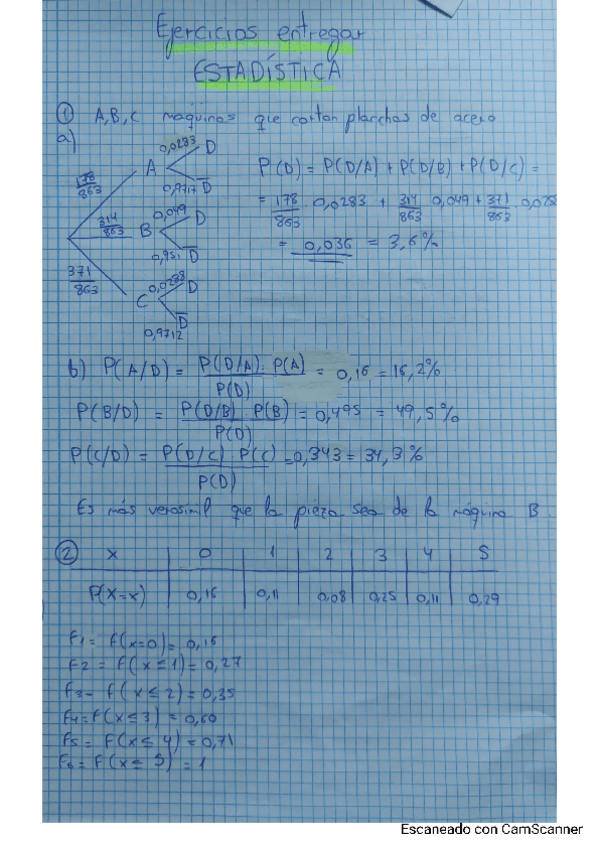 Ejercicios entregar
ESTADÍSTICA
① A, B, C máquinas que cortan planchas de acero
a)
178/863 A 0,0283 D
0,9717 D̅
314/863 B 0,049 D
0,951 D̅
371/863 C 0,0288 D
0,9712 D̅
P(D) = P(D/A) + P(D/B) + P(D/C) =
= 178/863 · 0,0283 + 314/863 · 0,049 + 371/863
= 0,036 = 3,6%
b) P(A/D) = P(D/A) · P(A) / P(D) = 0,16 = 16,2%
P(B/D) = P(D/B) · P(B) / P(D) = 0,495 = 49,5%
P(C/D) = P(D/C) · P(C) / P(D) = 0,343 = 34,3%
Es más verosimil que la pieza sea de la máquina B.
② x 0 1 2 3 4 5
P(X=x) 0,16 0,11 0,08 0,25 0,11 0,29
F1 = f(x=0) = 0,16
F2 = f(x≤1) = 0,27
F3 = f(x≤2) = 0,35
F4 = f(x≤3) = 0,60
F5 = f(x≤4) = 0,71
F6 = f(x≤5) = 1
Escaneado con CamScanner